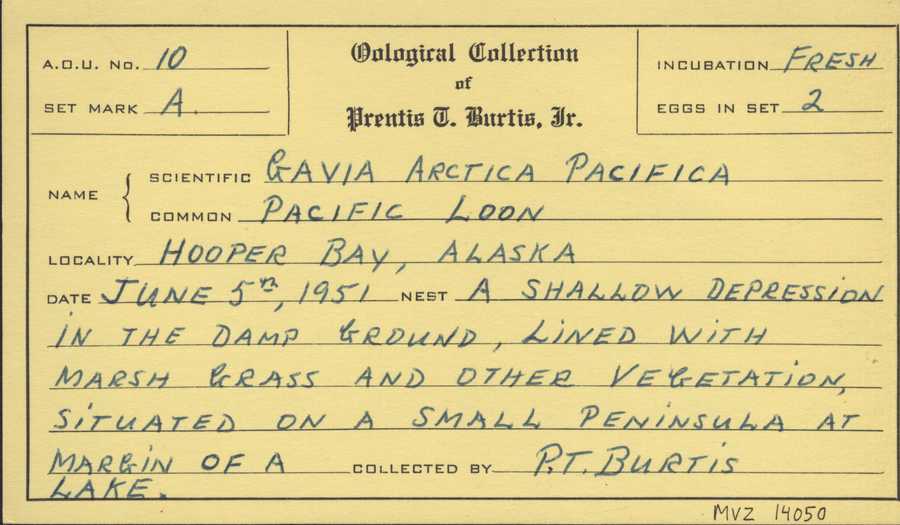 A.O.U. No. 10
SET MARK A.
Oological Collection
of
Prentis T. Burtis, Jr.
INCUBATION FRESH
EGGS IN SET 2
NAME
SCIENTIFIC GAVIA ARCTICA PACIFICA
COMMON PACIFIC LOON
LOCALITY HOOPER BAY, ALASKA
DATE JUNE 5TH, 1951 NEST A SHALLOW DEPRESSION
IN THE DAMP GROUND, LINED WITH
MARSH GRASS AND OTHER VEGETATION,
SITUATED ON A SMALL PENINSULA AT
MARGIN OF A COLLECTED BY P.T. BURTIS
LAKE.
MVZ 14050